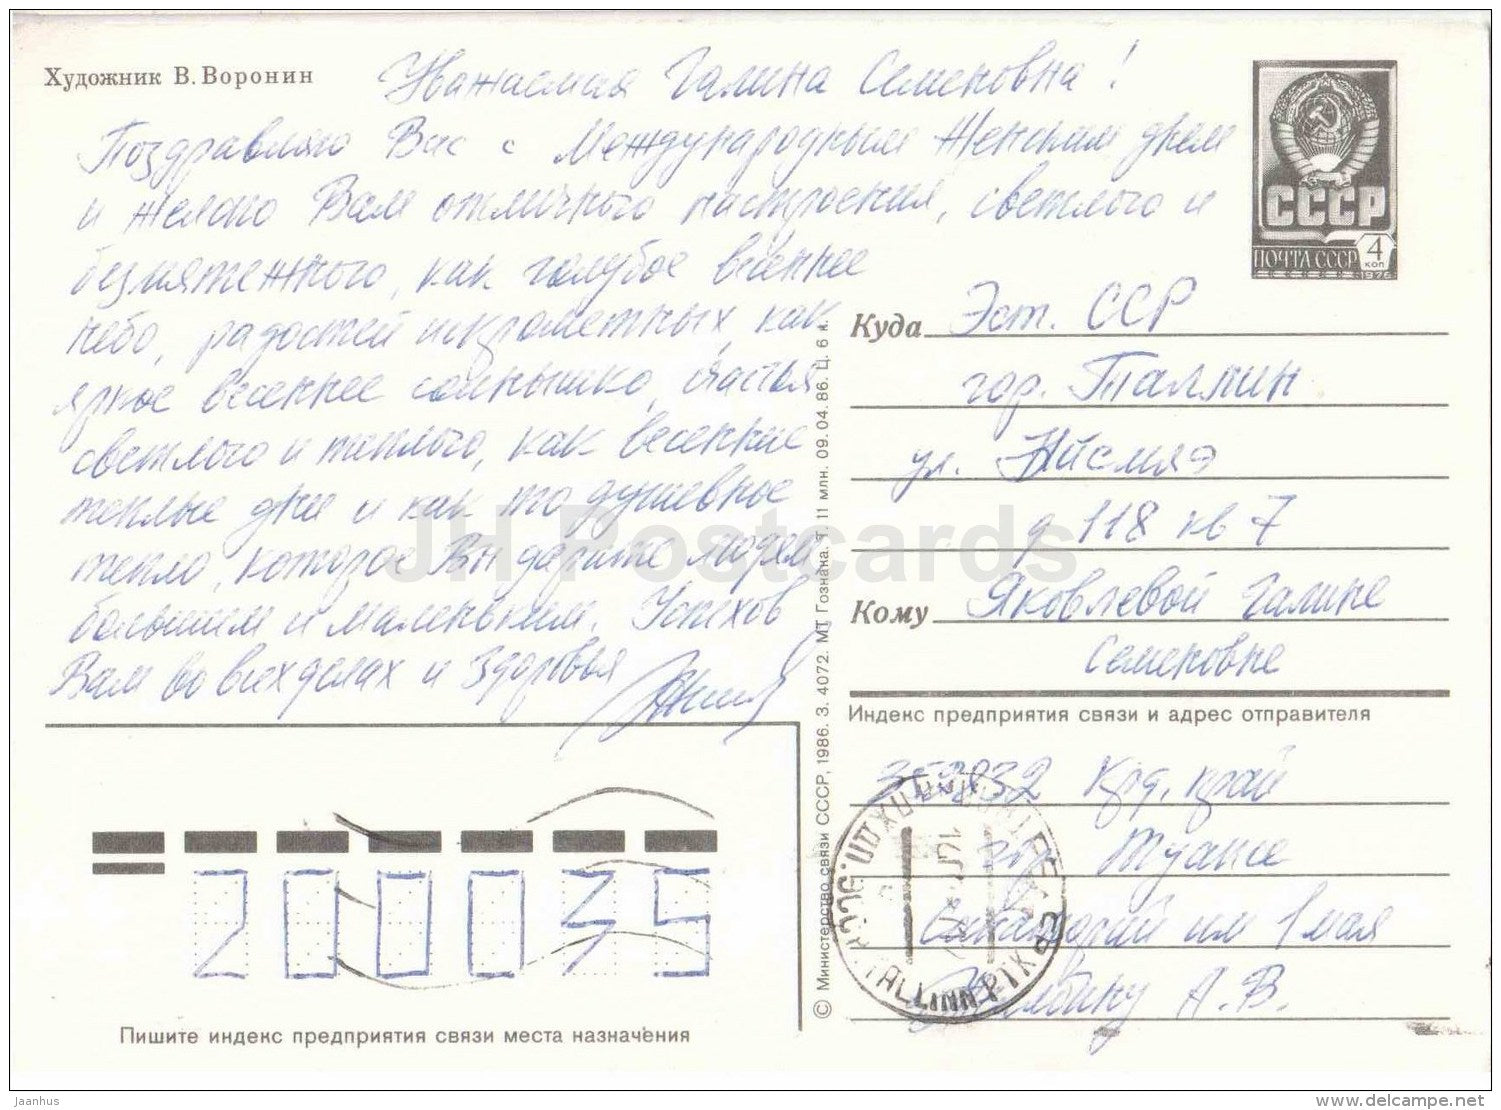 Художник В. Воронин
Уважаемая Галина Семеновна!
Поздравляю Вас с Международным Женским днем
и желаю Вам отличного настроения, светлого и
безмятежного, как голубое весеннее
небо, радостей искрометных, как
яркое весеннее солнышко, счастья
светлого и теплого, как весенние
теплые дни и как то душевное
тепло, которое Вы дарите людям
большим и маленьким. Успехов
Вам во всех делах и здоровья
СССР
4
КОП
ПОЧТА СССР
1976
Куда Эст. ССР
гор. Таллин
ул. Ййсмяэ
д 118 кв 7
Кому Яковлевой Галине
Семеновне
Индекс предприятия связи и адрес отправителя
352832 Крд. край
Туапсе
Санаторий им 1 мая
А. В.
TALLINN PIKK
200035
Пишите индекс предприятия связи места назначения
© Министерство связи СССР, 1986. З. 4072. МТ Гознака. Т. 11 млн. 09. 04. 86. Ц. 6 к.
JH Postcards
Jaanhus
www.delcampe.net